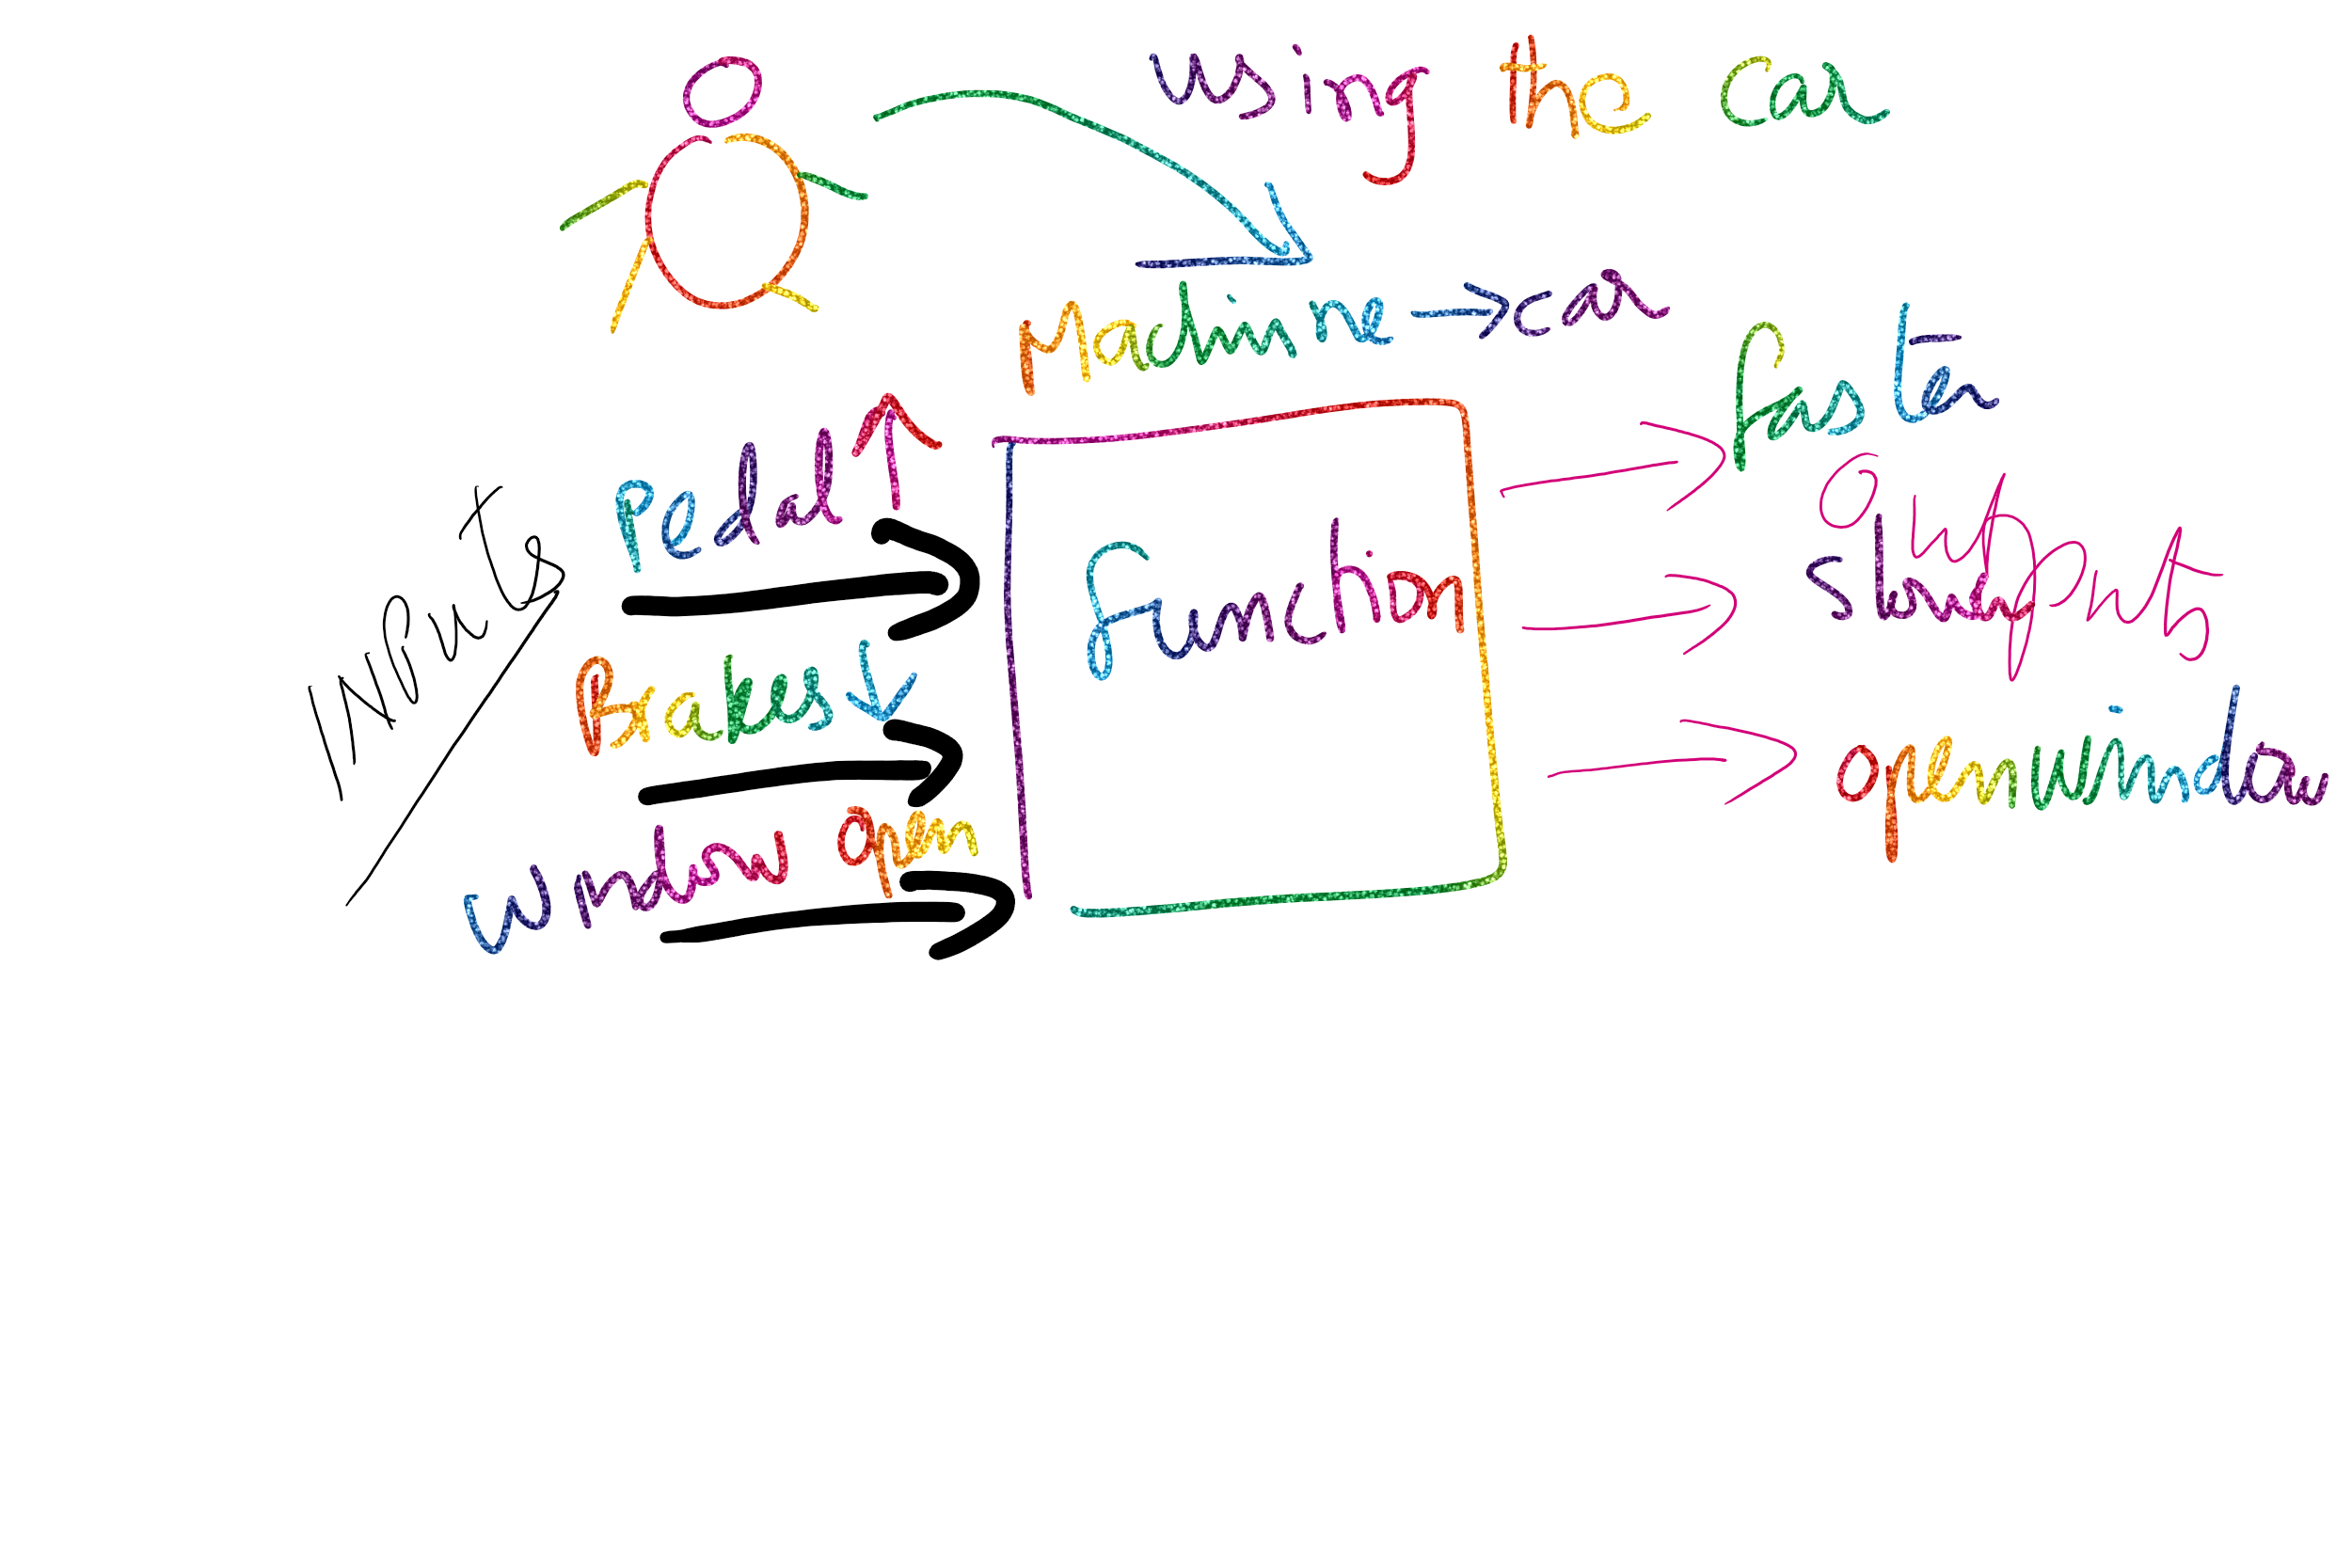 using the car
Machine → car
INPUTS
Pedal ↑
Brakes ↓
Window open
function
faster
outputs
slower
open window